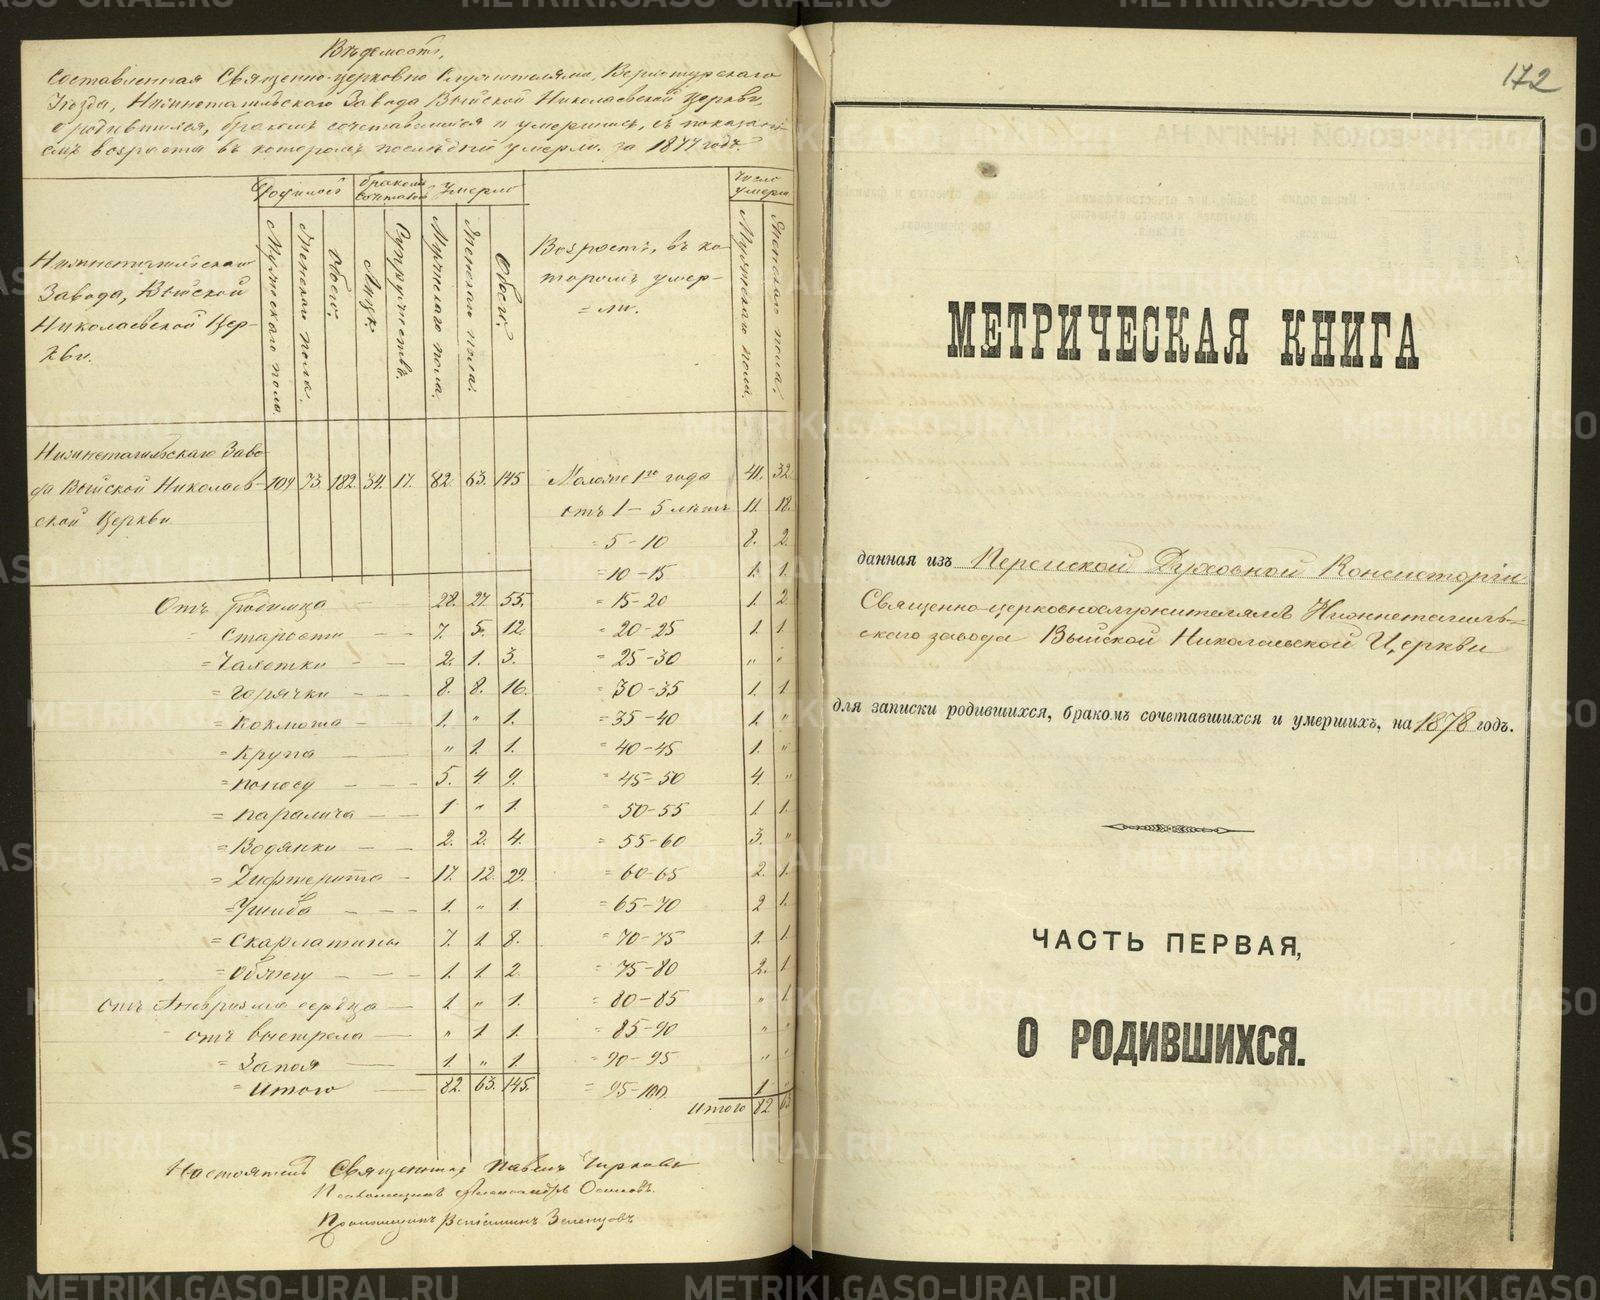 Вѣдомость,
составленная Священно-церковно служителями, Верхотурскаго
Уѣзда, Нижнетагильскаго Завода Выйской Николаевской Церкви,
о родившихся, бракомъ сочетавшихся и умершихъ, съ показані-
емъ возраста въ которомъ послѣдніе умерли. за 1877 годъ.
Нижнетагильскаго
Завода, Выйской
Николаевской Цер-
кви.
Родилось
Мужескаго пола.
Женскаго пола.
Обоего.
бракомъ
сочеталось
Лицъ.
Супружествъ.
Умерло
Мужескаго пола.
Женскаго пола.
Обоего.
Возрастъ, въ ко-
торомъ умер-
=ли.
Число
умерш.
Мужескаго пола.
Женскаго пола.
Нижнетагильскаго Заво-
да Выйской Николаев-
ской Церкви
109 73. 182. 34. 17. 82. 63. 145
Моложе 1го года 41. 32.
отъ 1 - 5 лѣтъ 11. 18.
= 5 - 10 8. 2.
= 10 - 15 1. 1.
= 15 - 20 1. 2
= 20 - 25 1. 1.
= 25 - 30 „ „
= 30 - 35 1. 1
= 35 - 40 1. „
= 40 - 45 1. „
= 45 - 50 4. „
50 - 55 1. 1.
= 55 - 60 3. „
= 60 - 65 2. 1.
= 65 - 70 2 1.
= 70 - 75 1. 1.
= 75 - 80 2. 1
= 80 - 85 „ 1.
= 85 - 90 „ „
= 90 - 95 „ „
= 95 - 100 1 „
Итого 82 63
Отъ Родимца 28. 27. 55.
= Старости 7. 5. 12.
= Чахотки 2. 1. 3.
= Горячки 8. 8. 16.
= Коклюша 1. „ 1.
= Крупа „ 1. 1.
= Поносу 5. 4 9.
= Паралича 1 „ 1.
= Водянки 2. 2. 4.
= Дифтерита 17. 12. 29.
= Ушиба 1. „ 1.
= Скарлатины 7. 1 8.
= 1. 1 2.
отъ Аневризма сердца 1 „ 1.
отъ выстрела „ 1 1.
= Запоя 1. „ 1.
= Итого 82. 63. 145.
Настоятель Священникъ Павелъ
Псаломщикъ Александръ Осиповъ.
Псаломщикъ Веніаминъ Зеленцовъ
172
МЕТРИЧЕСКАЯ КНИГА
данная изъ Пермской Духовной Консисторіи
Священно-церковнослужителямъ Нижнетагиль-
скаго завода Выйской Николаевской Церкви
для записки родившихся, бракомъ сочетавшихся и умершихъ, на 1878 годъ.
ЧАСТЬ ПЕРВАЯ,
О РОДИВШИХСЯ.
METRIKI.GASO-URAL.RU